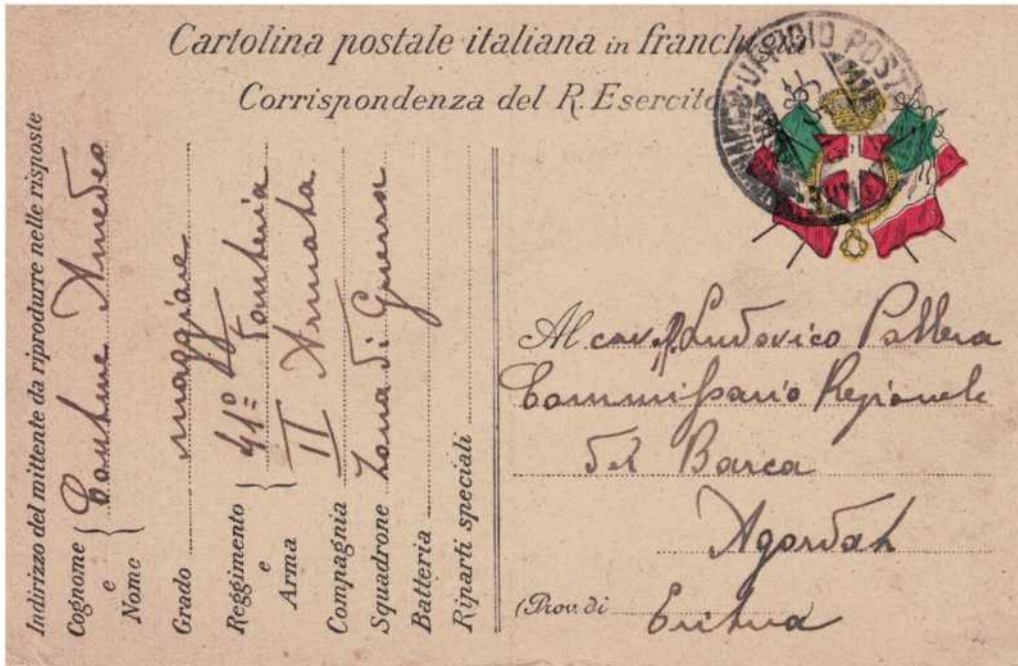 Cartolina postale italiana in franchigia
Corrispondenza del R. Esercito
UFFICIO POST
Indirizzo del mittente da riprodurre nelle risposte
Cognome e Nome Amedeo
Grado maggiore
Reggimento e Arma 41º Fanteria
II Armata
Compagnia
Squadrone Zona di Guerra
Batteria
Riparti speciali
Al cav. Ludovico Pollera
Commissario Regionale
del Barca
Agordah
(Prov. di Eritrea